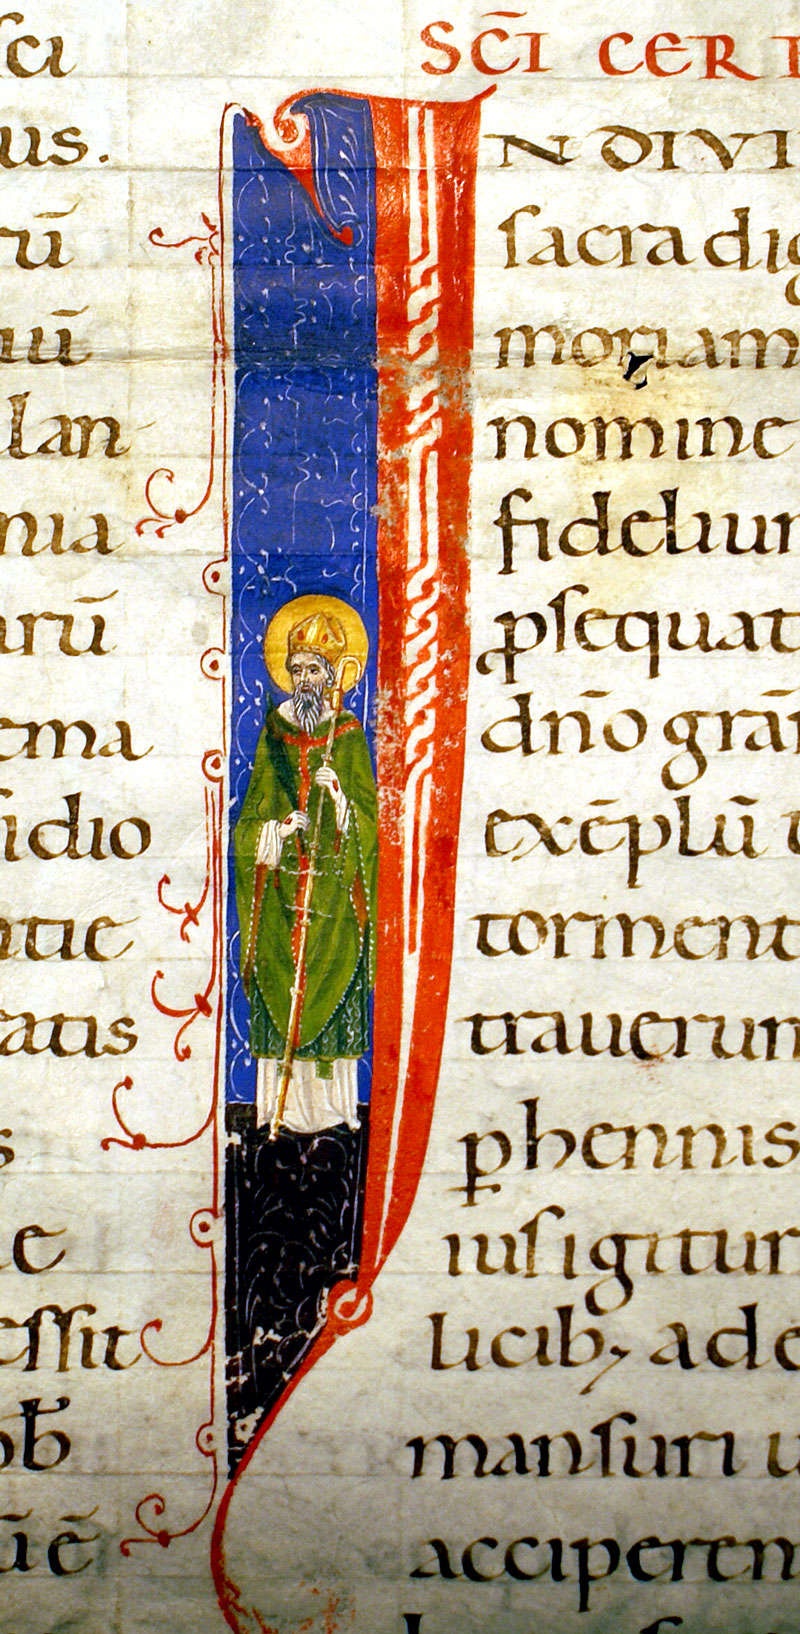 sci
us.
rū
iū
lan
nia
arū
ema
sidio
ntie
eatis
s
e
essit
ob
ūē
SC̄I CER
IN DIVI
sacra dig
moriam
nomine
fideliun
ꝓsequat
dn̄o grā
exēplū t
torment
trauerun
ꝑhennis
ius igitur
licib; ade
mansuri u
acciperem